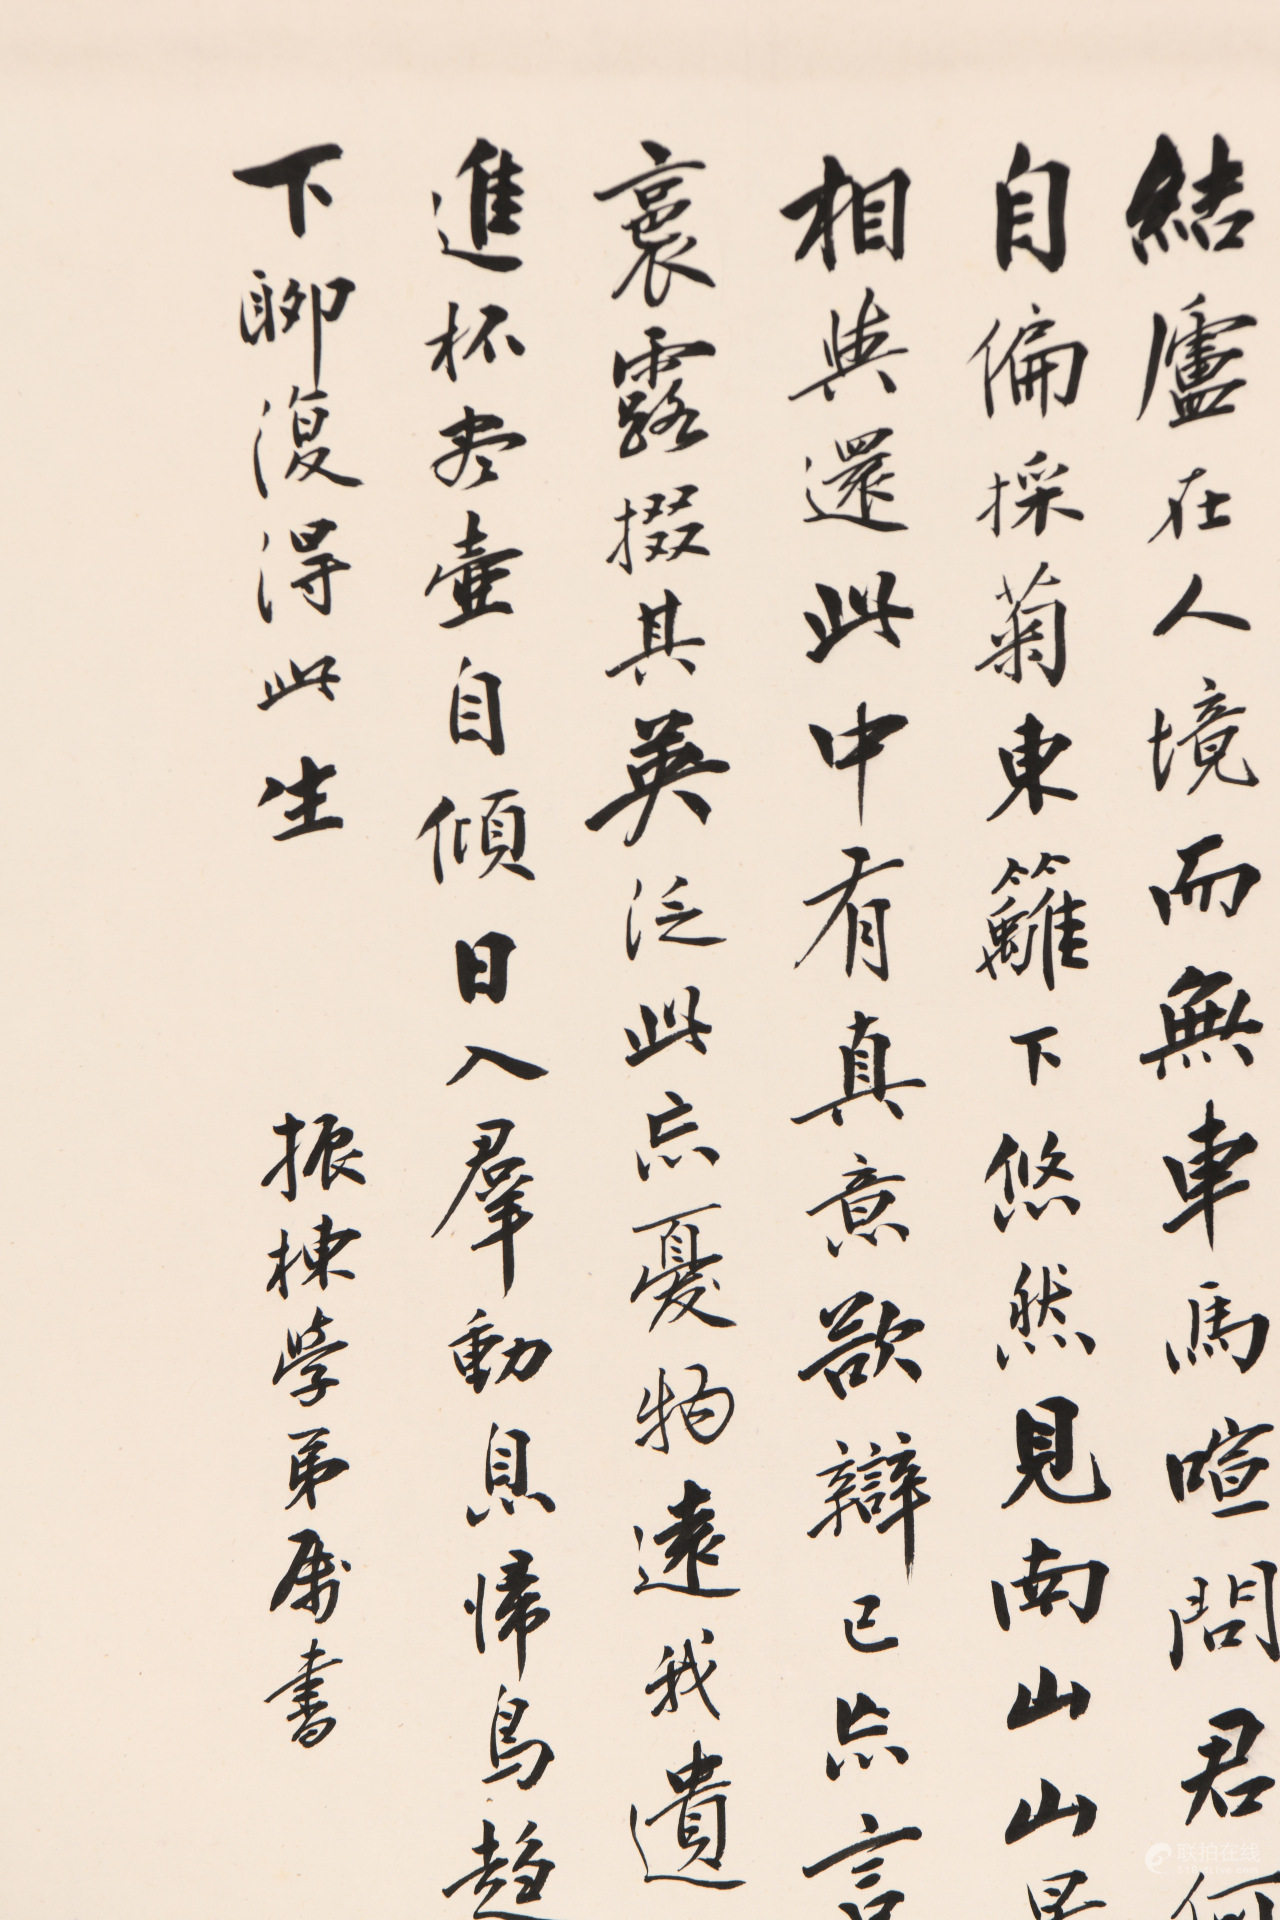 結廬在人境而無車馬喧問君何
自偏採菊東籬下悠然見南山山
相與還此中有真意欲辯已忘言
裛露掇其英泛此忘憂物遠我遺
進杯尽壺自傾日入羣動息歸鳥趨
下聊復得此生
振棟学弟属書
联拍在线